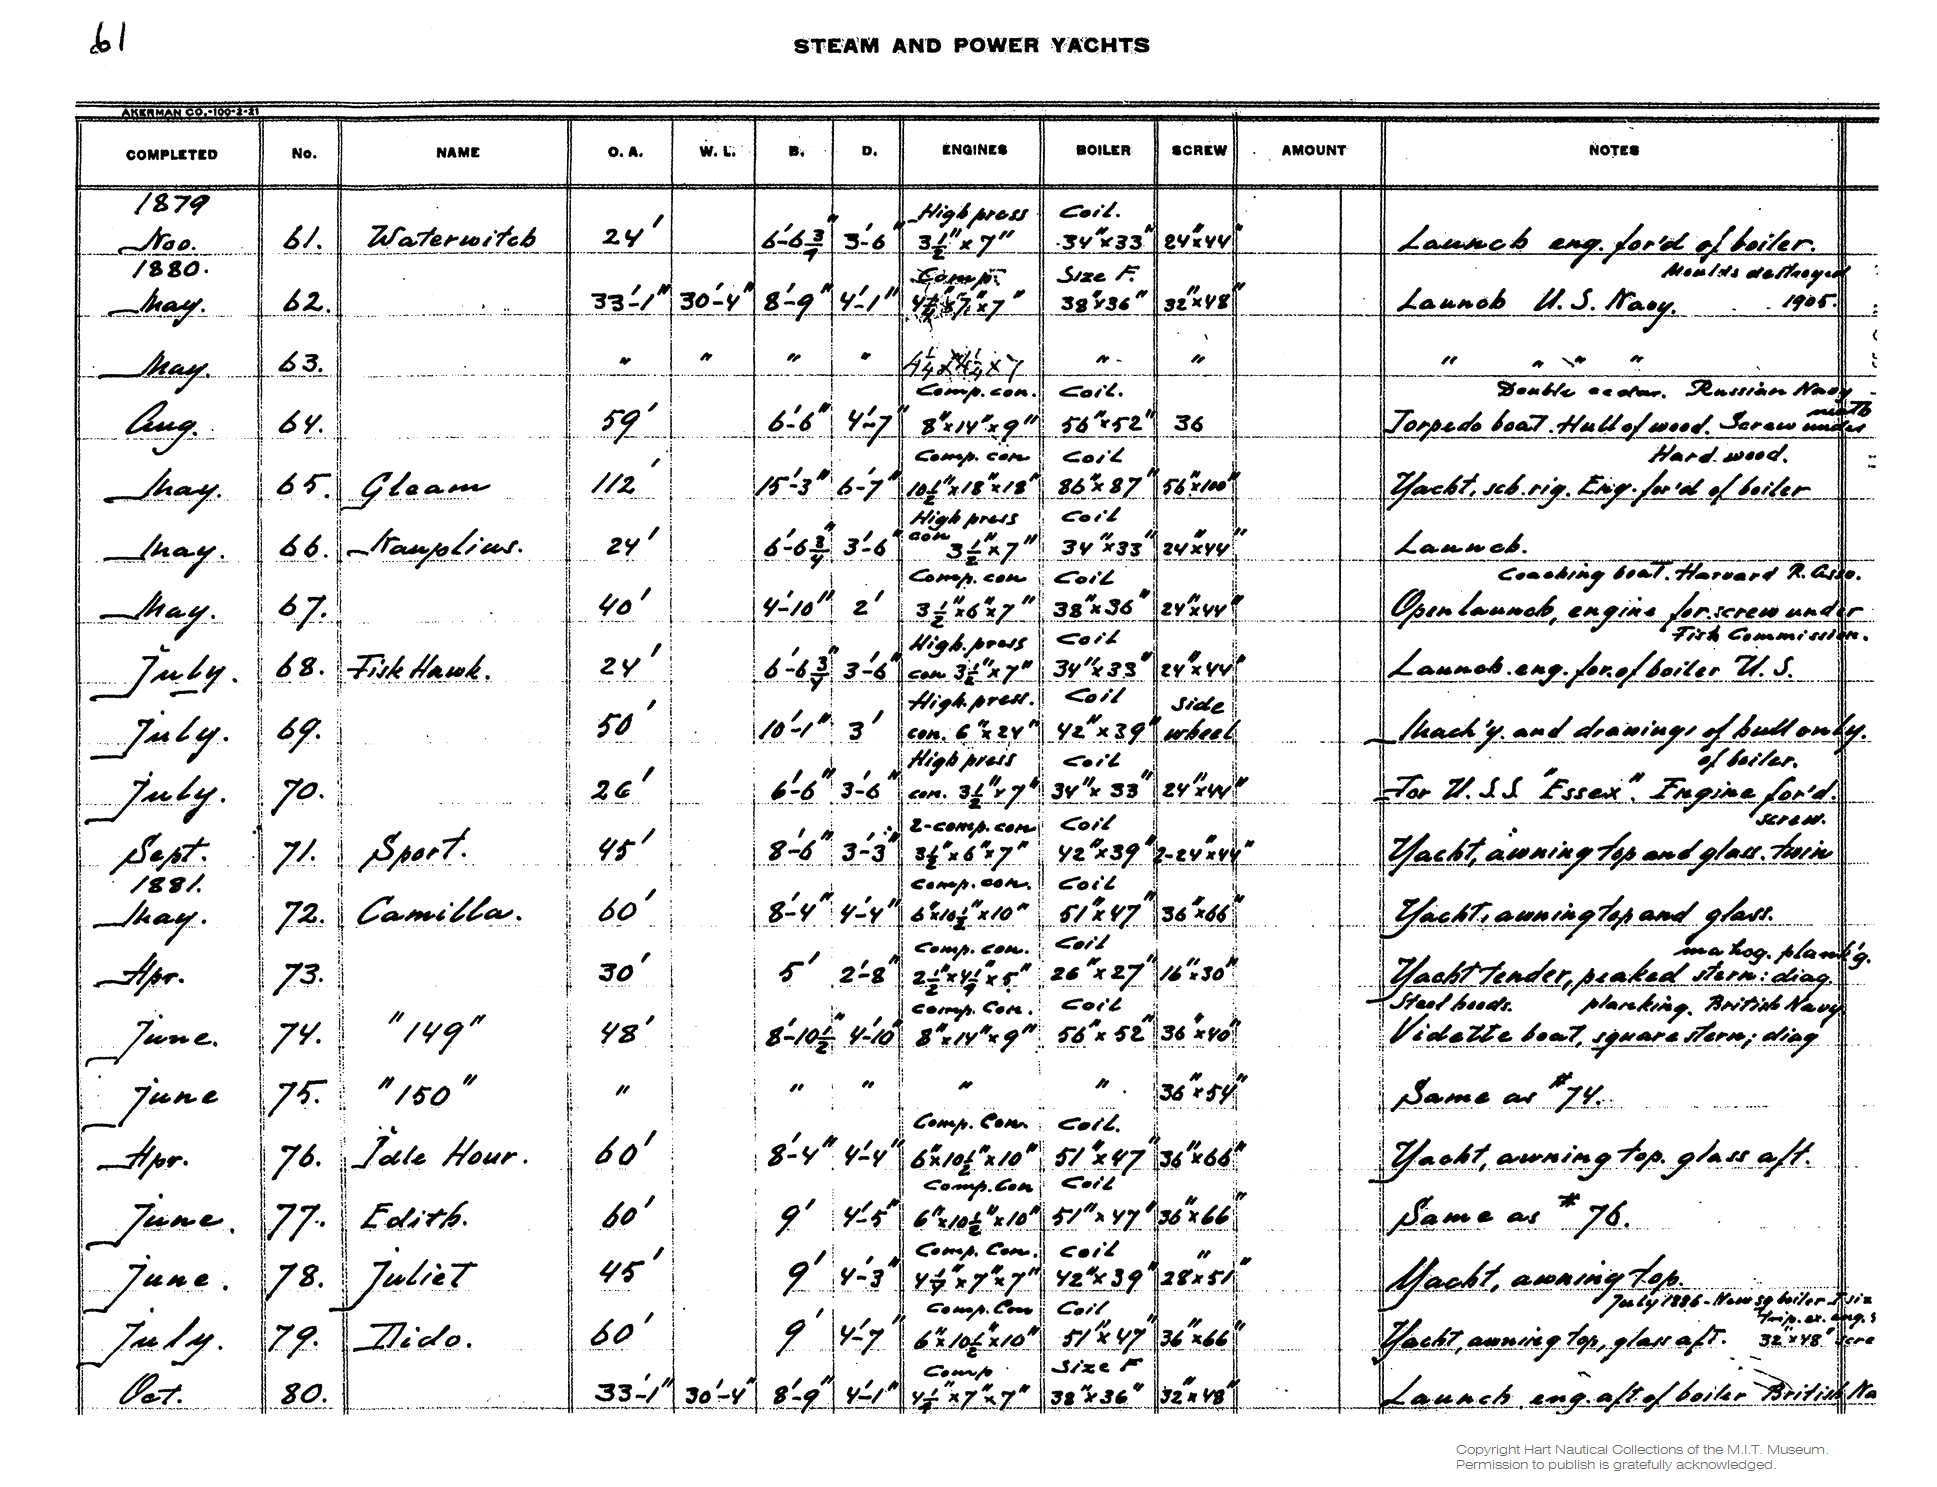 61
STEAM AND POWER YACHTS
AKERMAN CO.-100-2-21
COMPLETED No. NAME O. A. W. L. B. D. ENGINES BOILER SCREW AMOUNT NOTES
1879 High press Coil.
Nov. 61. Waterwitch 24' 6'-6 3/4" 3'-6" 3 1/2" x 7" 34" x 33" 24" x 44" Launch eng. for'd of boiler.
1880. Comp. Size F. Moulds destroyed
May. 62. 33'-1" 30'-4" 8'-9" 4'-1" 38" x 36" 32" x 48" Launch U. S. Navy. 1905.
May. 63. " " " " 4 1/4 x 4 1/4 x 7 " " " " " "
Comp. con. Coil. Double cedar. Russian Navy
neath
Aug. 64. 59' 6'-6" 4'-7" 8" x 14" x 9" 56" x 52" 36 Torpedo boat. Hull of wood. Screw under
Comp. con Coil Hard. wood.
May. 65. Gleam 112' 15'-3" 6'-7" 10 1/2" x 18" x 18" 86" x 87" 56" x 100" Yacht, sch. rig. Eng. for'd of boiler
High press Coil
May. 66. Nauplius. 24' 6'-6 3/4" 3'-6" con 3 1/2" x 7" 34" x 33" 24" x 44" Launch.
Comp. con Coil Coaching boat. Harvard R. Asso.
May. 67. 40' 4'-10" 2' 3 1/2" x 6" x 7" 38" x 36" 24" x 44" Open launch, engine for. screw under
High. press Coil Fish Commission.
July. 68. Fish Hawk. 24' 6'-6 3/4" 3'-6" con 3 1/2" x 7" 34" x 33" 24" x 44" Launch. eng. for. of boiler U. S.
High. press. Coil side
July. 69. 50' 10'-1" 3' con. 6" x 24" 42" x 39" wheel Mach'y. and drawings of hull only.
High press Coil of boiler.
July. 70. 26' 6'-6" 3'-6" con. 3 1/2" x 7" 34" x 33" 24" x 44" For U. S. S. "Essex". Engine for'd.
2-comp. con Coil screw.
Sept. 71. Sport. 45' 8'-6" 3'-3" 3 1/2" x 6" x 7" 42" x 39" 2-24" x 44" Yacht, awning top and glass. twin
1881. Comp. con. Coil
May. 72. Camilla. 60' 8'-4" 4'-4" 6" x 10 1/2" x 10" 51" x 47" 36" x 66" Yacht, awning top and glass.
Comp. con. Coil mahog. plank'g.
Apr. 73. 30' 5' 2'-8" 2 1/2" x 4 1/2" x 5" 26" x 27" 16" x 30" Yacht tender, peaked stern: diag.
Comp. Con. Coil Steel hoods. planking. British Navy
June. 74. "149" 48' 8'-10 1/2" 4'-10" 8" x 14" x 9" 56" x 52" 36" x 40" Vidette boat, square stern; diag
June 75. "150" " " " " " 36" x 54" Same as #74.
Comp. Con Coil.
Apr. 76. Idle Hour. 60' 8'-4" 4'-4" 6" x 10 1/2" x 10" 51" x 47" 36" x 66" Yacht, awning top. glass aft.
Comp. Con Coil
June. 77. Edith. 60' 9' 4'-5" 6" x 10 1/2" x 10" 51" x 47" 36" x 66" Same as # 76.
Comp. Con. Coil
June. 78. Juliet 45' 9' 4'-3" x 7" x 7" 42" x 39" 28" x 51" Yacht, awning top.
Comp. Con Coil July 1886 - New sq boiler I siz
Trip. ex. eng. s
July. 79. Dido. 60' 9' 4'-7" 6" x 10 1/2" x 10" 51" x 47" 36" x 66" Yacht, awning top, glass aft. 32" x 48" scre
Comp Size F
Oct. 80. 33'-1" 30'-4" 8'-9" 4'-1" x 7" x 7" 38" x 36" 32" x 48" Launch eng. aft of boiler British Na
Copyright Hart Nautical Collections of the M.I.T. Museum.
Permission to publish is gratefully acknowledged.